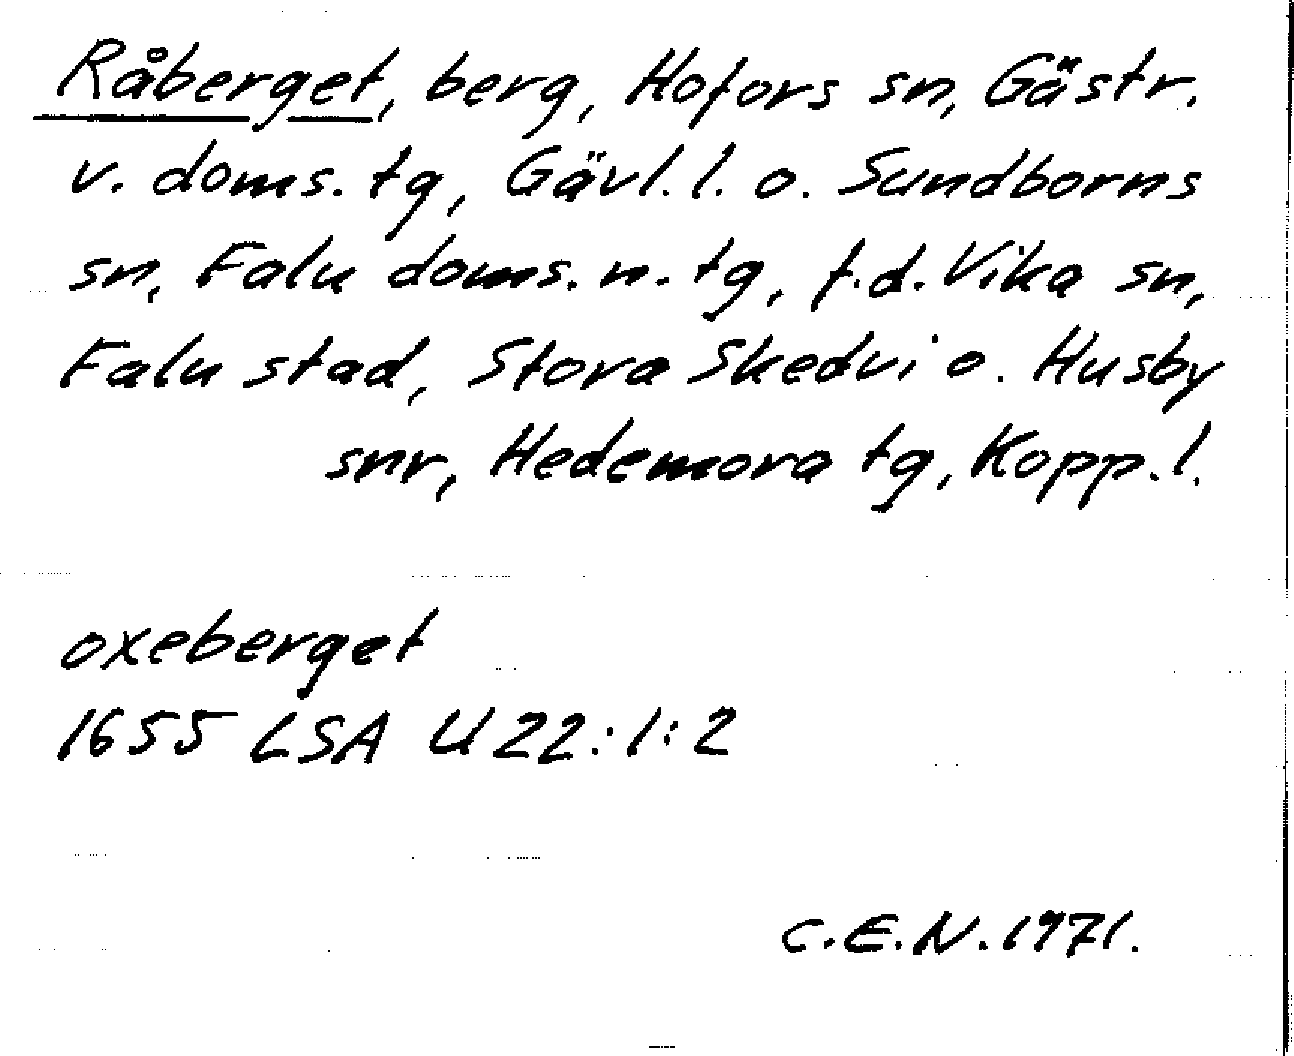 Råberget, berg, Hofors sn, Gästr.
v. doms. tg, Gävl. l. o. Sundborns
sn, Falu doms. n. tg, f.d. Vika sn,
Falu stad, Stora Skedvi o. Husby
snr, Hedemora tg, Kopp. l.
oxeberget
1655 LSA U 22:1:2
C.E.N. 1971.